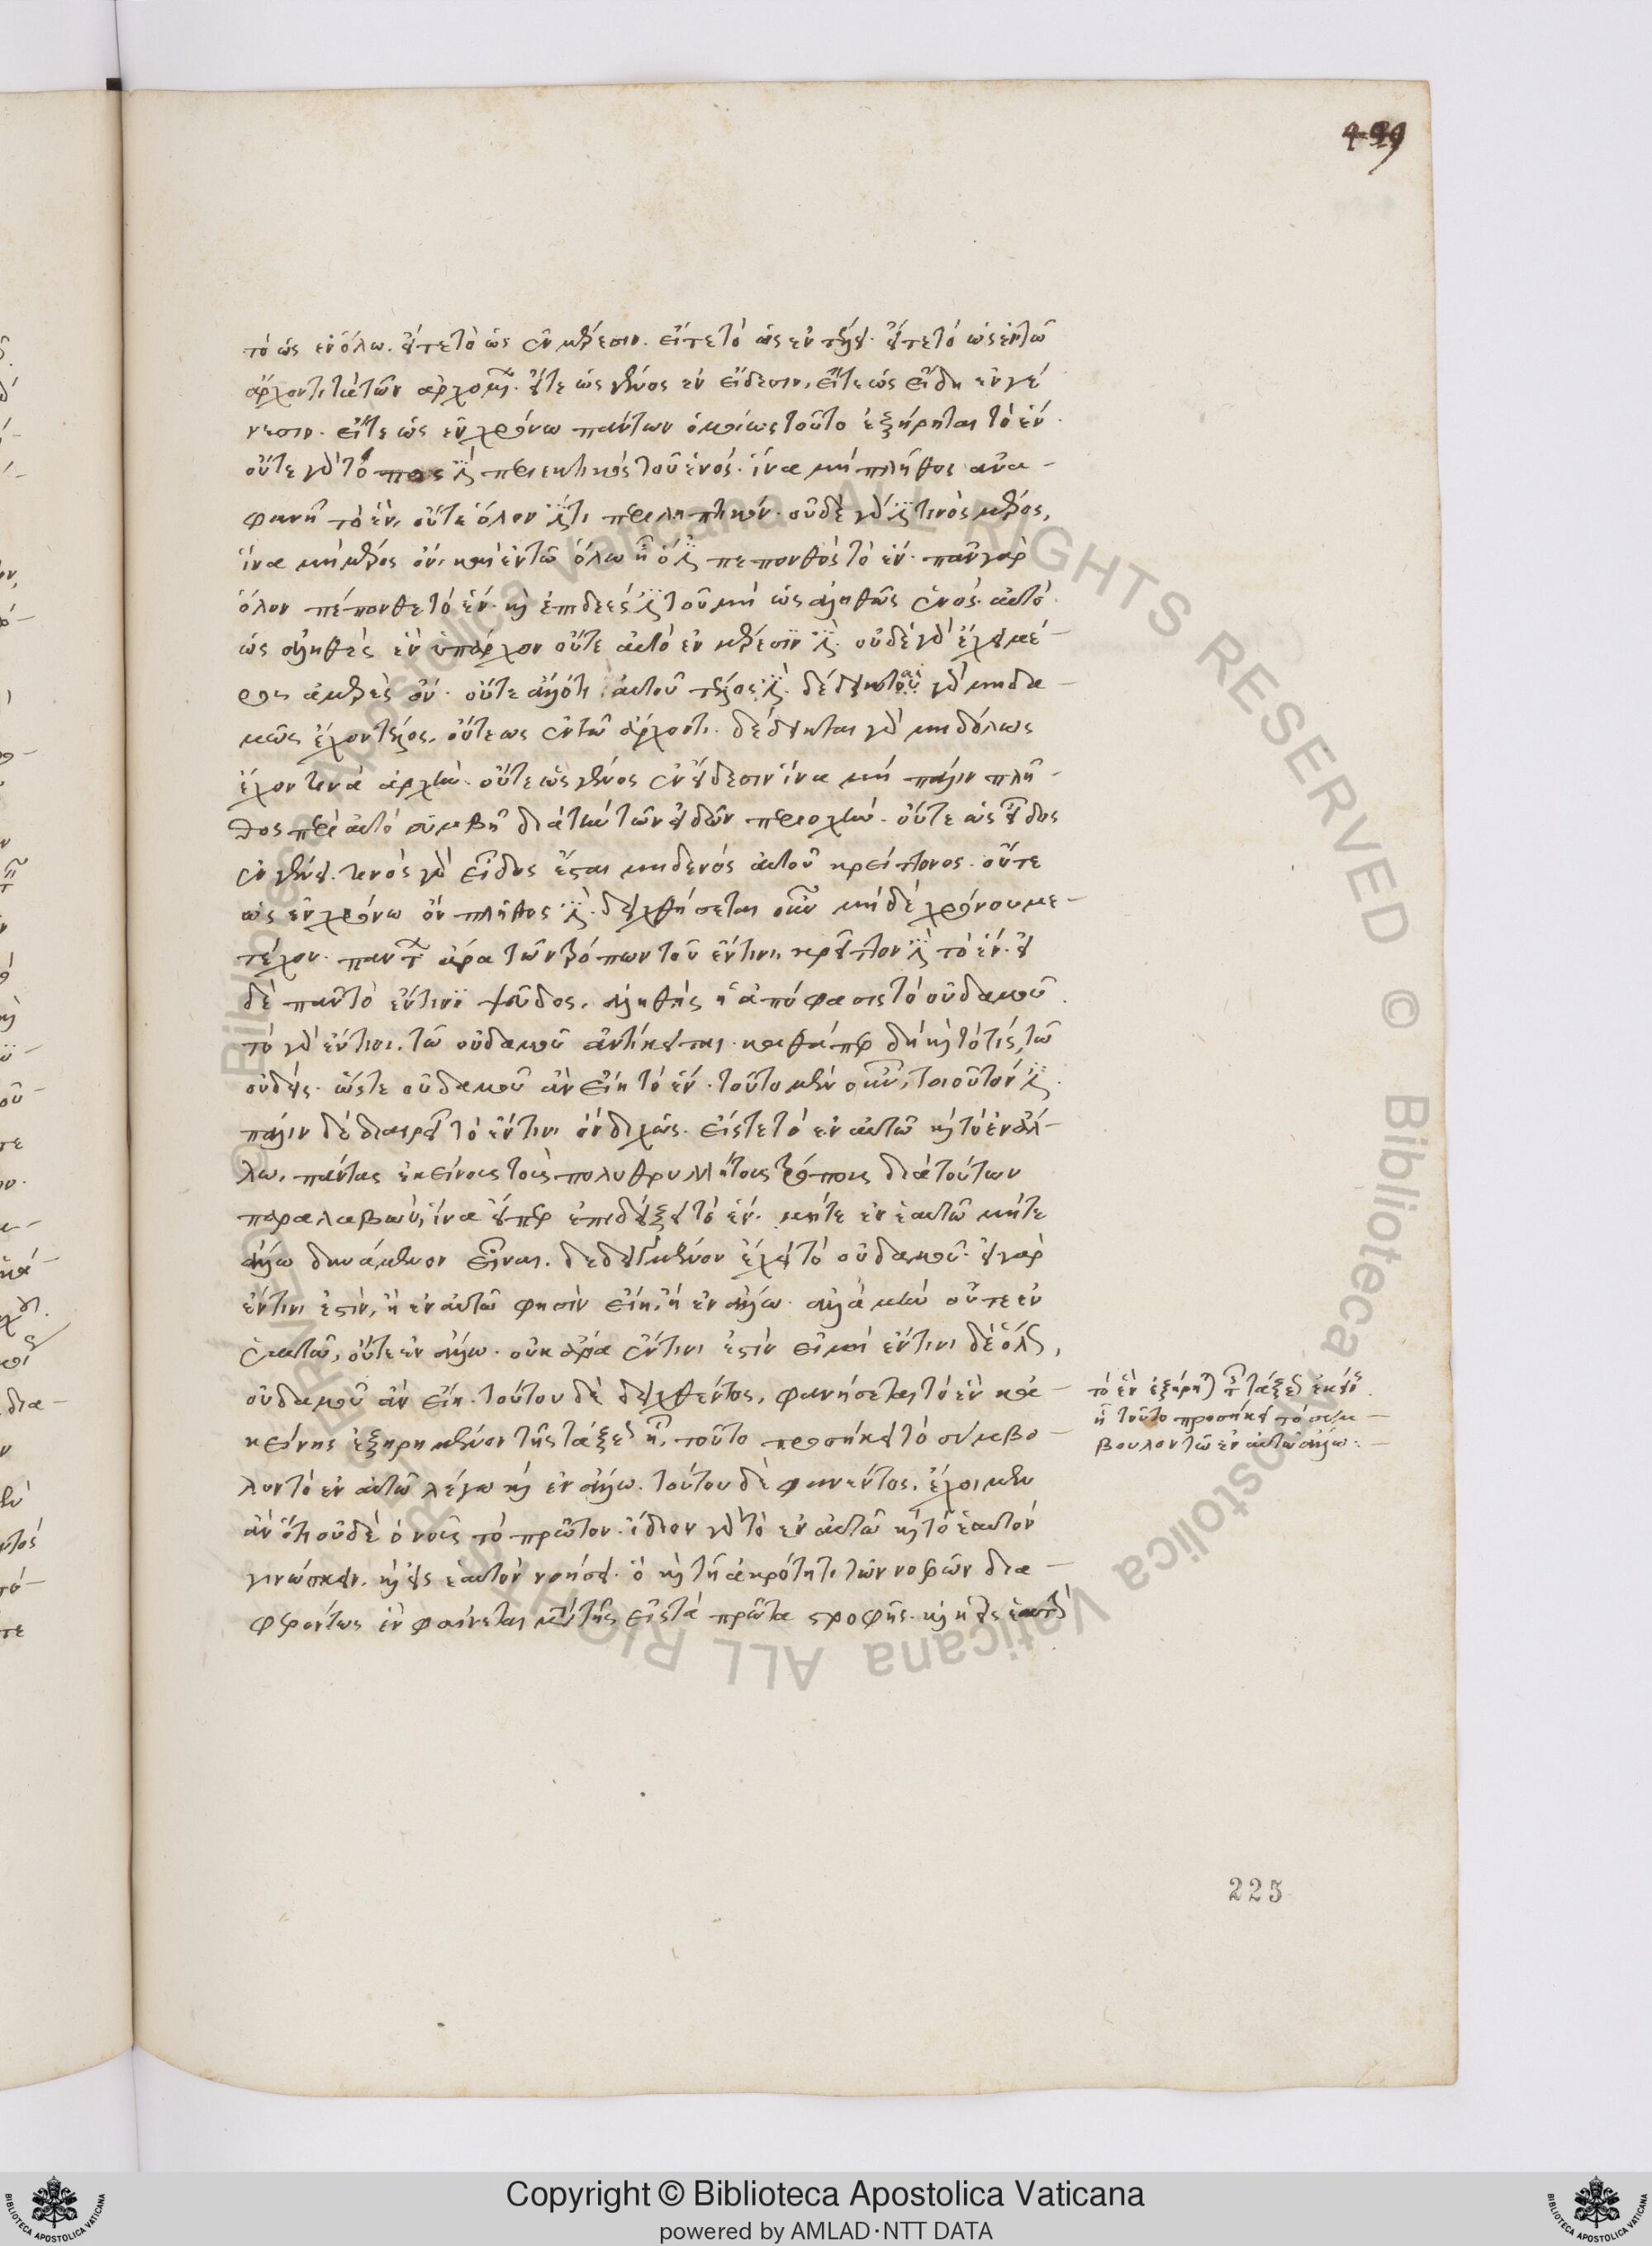 499
τὸ ὡς ἐν ὅλω. εἴτε τὸ ὡς ἐν μέρεσιν. εἴτε τὸ ὡς ἐν τέλει. εἴτε τὸ ὡς ἐν τῶ
ἄρχοντι τὰ τῶν ἀρχομένων. εἴτε ὡς γένος ἐν εἴδεσιν, εἴτε ὡς εἴδη ἐν γέ-
νεσιν. εἴτε ὡς ἐν χρόνω πάντων ὁμοίως τοῦτο ἐξήρηται τὸ ἕν.
οὔτε γὰρ τόπος ἐστὶ περιεκτικὸς τοῦ ἑνός. ἵνα μὴ πλῆθος ἀνα-
φανῆ τὸ ἕν. οὔτε ὅλον ἐστί τι περιληπτικόν. οὐδὲ γάρ ἐστι τινὸς μέρος,
ἵνα μὴ μέρος ὂν, καὶ ἐν τῶ ὅλω ἢ ὅ ἐστι πεπονθὸς τὸ ἕν. πᾶν γὰρ
ὅλον πέπονθε τὸ ἕν. καὶ ἐπιδεές ἐστι τοῦ μὴ ὡς ἀληθῶς ἑνός. αὐτό
ὡς ἀληθὲς ἓν ὑπάρχον οὔτε αὐτὸ ἐν μέρεσιν ἐστί. οὐδὲ γὰρ ἔχει μέ-
ρος ἀμερὲς ὄν. οὔτε ἄλλό τι αὐτοῦ τέλος ἐστί. δέδεικται γὰρ μηδα-
μῶς ἔχον τέλος. οὔτε ὡς ἐν τῶ ἄρχοντι. δέδεικται γὰρ μηδόλως
ἔχον τινὰ ἀρχήν. οὔτε ὡς γένος ἐν εἴδεσιν ἵνα μὴ πάλιν πλῆ-
θος περὶ αὐτό συμβῆ διὰ τὴν τῶν εἰδῶν περιοχήν. οὔτε ὡς εἶδος
ἐν γένει. τινὸς γὰρ εἶδος ἔσται μηδενὸς αὐτοῦ κρείττονος. οὔτε
ὡς ἐν χρόνω ὂν πλῆθος ἐστί. δειχθήσεται οὖν μηδὲ χρόνου με-
τέχον. πάντων ἄρα τῶν τρόπων τοῦ ἔν τινι, κρεῖττον ἐστὶ τὸ ἕν. εἰ
δὲ πᾶν τὸ ἔν τινι ψεῦδος, ἀληθὴς ἡ ἀπόφασις τὸ οὐδαμοῦ.
τὸ γὰρ ἔν τινι. τῶ οὐδαμοῦ ἀντίκειται. καθάπερ δὴ καὶ τὸ τὶς, τῶ
οὐδείς. ὥστε οὐδαμοῦ ἂν εἴη τὸ ἕν. τοῦτο μὲν οὖν, τοιοῦτόν ἐστι.
πάλιν δὲ διαιρεῖ τὸ ἔν τινι ὂν διχῶς. εἴς τε τὸ ἐν αὐτῶ καὶ τὸ ἐν ἄλ-
λω. πάντας ἐκείνους τοὺς πολυθρυλλήτους τρόπους διὰ τούτων
παραλαβὼν, ἵνα εἴπερ ἐπιδείξει τὸ ἕν. μήτε ἐν ἑαυτῶ μήτε
ἄλλω δυνάμενον εἶναι. δεδειγμένον ἔχει τὸ οὐδαμοῦ. εἰ γὰρ
ἔν τινι ἐστὶν, ἢ ἐν αὐτῶ φησὶν εἴη, ἢ ἐν ἄλλω. ἀλλὰ μὴν οὔτε ἐν
ἑαυτῶ, οὔτε ἐν ἄλλω. οὐκ ἄρα ἔν τινι ἐστὶν εἰ μὴ ἔν τινι δὲ ὅλως,
οὐδαμοῦ ἂν εἴη. τούτου δὲ δειχθέντος, φανήσεται τὸ ἓν κἀ-
κείνης ἐξηρημένον τῆς τάξεως ἧ. τοῦτο προσήκει τὸ σύμβο-
λον τὸ ἐν αὐτῶ λέγω καὶ ἐν ἄλλω. τούτου δὲ φανέντος, ἔχοιμεν
ἂν ὅτι οὐδὲ ὁ νοῦς τὸ πρῶτον. ἴδιον γὰρ τὸ ἐν αὐτῶ καὶ τὸ ἑαυτὸν
γινώσκειν. καὶ εἰς ἑαυτὸν νοήσει. ὃ καὶ τῆ ἀκρότητι τῶν νοερῶν δια-
φερόντως ἓν φαίνεται μετὰ τῆς εἰς τὰ πρῶτα στροφῆς. καὶ ἡ εἰς ἑαυτὸ
τὸ ἓν ἐξήρηται τῆς τάξεως ἐκείνης.
ἧ τοῦτο προσήκει τὸ σύμ-
βουλον τῶ ἐν αὐτῶ ἄλλω:-
225
Copyright © Biblioteca Apostolica Vaticana
powered by AMLAD·NTT DATA